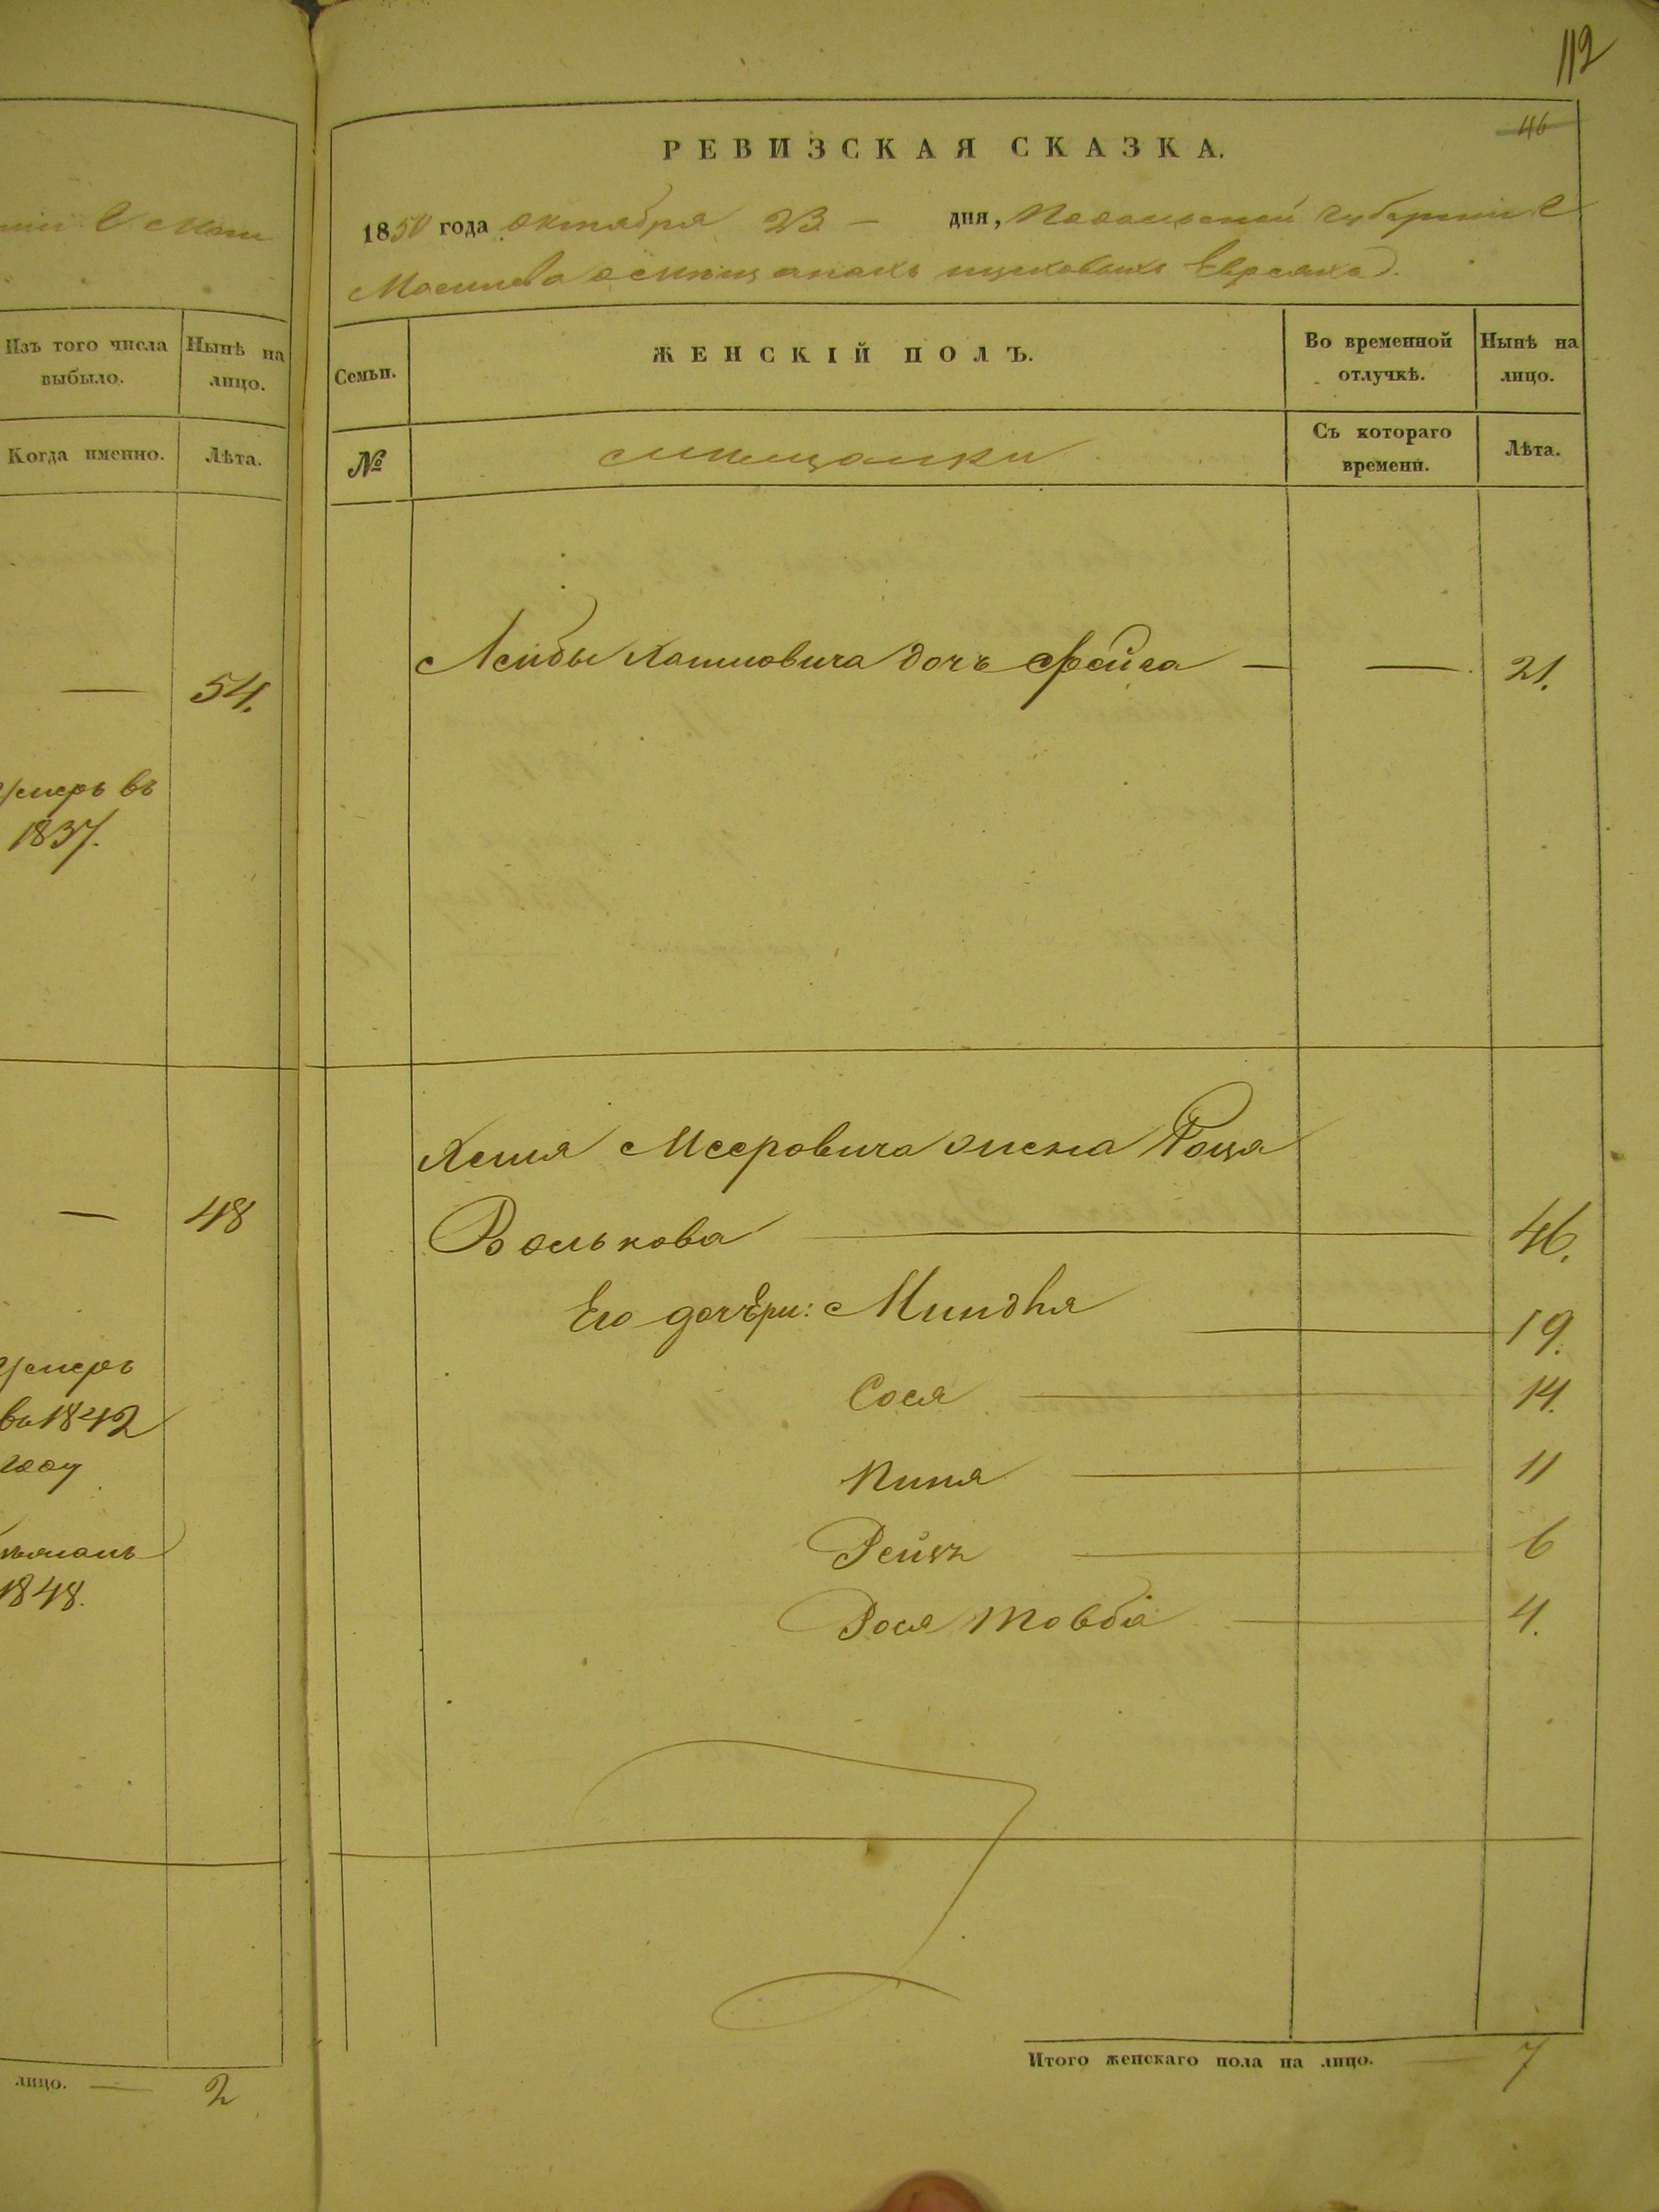 мѣ
Изъ того числа выбыло.
Нынѣ на лицо.
Когда именно.
Лѣта.
—
54.
Умеръ въ
1837.
—
48
Умеръ
въ 1842
году
1848.
лицо. — 2
112
46
РЕВИЗСКАЯ СКАЗКА.
1850 года октября 23 — дня, Подольской губерніи
о мѣщанахъ Евреяхъ
Семьи.
ЖЕНСКІЙ ПОЛЪ.
Во временной отлучкѣ.
Нынѣ на лицо.
№
мѣщанки
Съ котораго времени.
Лѣта.
Лейбы Хаимовича дочь Фейга — — 21.
Мееровича жена Роця
Волькова 46.
Его дочѣри: Миндля 19.
Сося 14.
Пипя 11
Рейзя 6
Рося Товба 4.
Итого женскаго пола на лицо. — 7